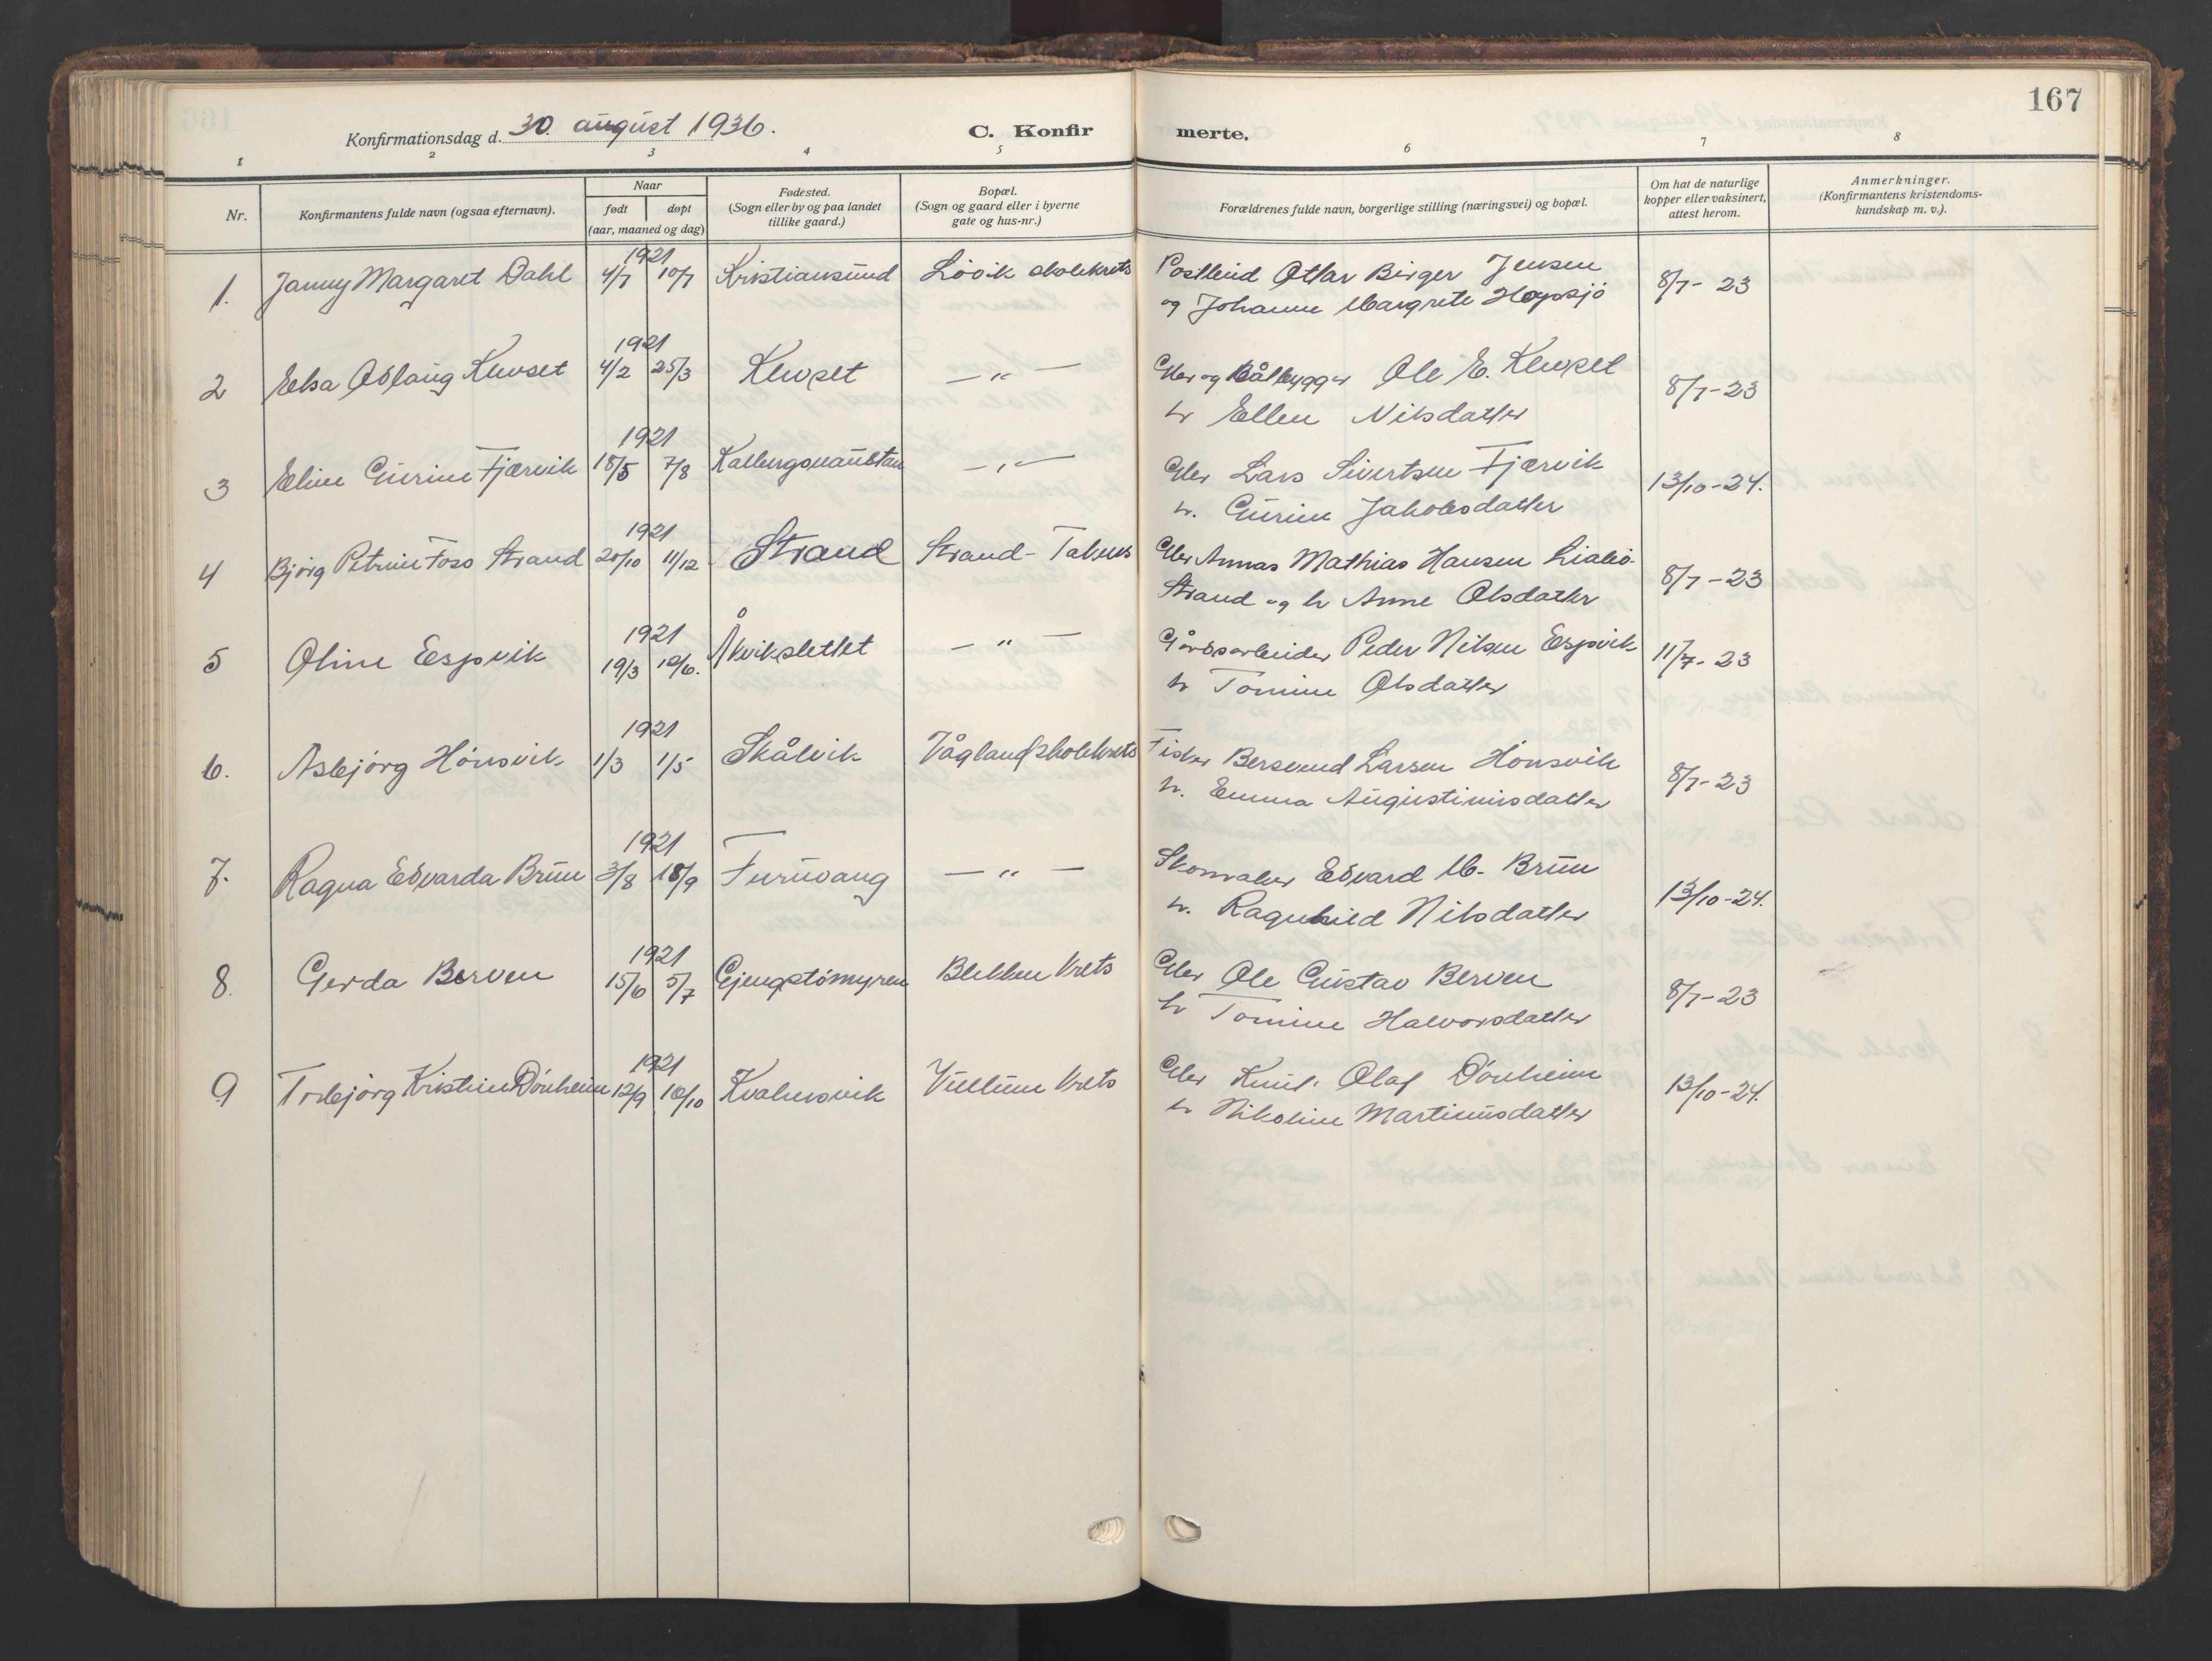 167
Konfirmationsdag d. 30. august 1936.
C. Konfirmerte.
1 2 3 4 5 6 7 8
Nr.
Konfirmantens fulde navn (ogsaa efternavn).
Naar
født døpt
(aar, maaned og dag)
Fødested.
(Sogn eller by og paa landet
tillike gaard.)
Bopæl.
(Sogn og gaard eller i byerne
gate og hus-nr.)
Forældrenes fulde navn, borgerlige stilling (næringsvei) og bopæl.
Om hat de naturlige
kopper eller vaksinert,
attest herom.
Anmerkninger.
(Konfirmantens kristendoms-
kundskap m. v.).
1921
1. Janny Margaret Dahl 4/7 10/7 Kristiansund Lövik skolekrets Postbud Ottar Birger Jensen 8/7-23
og Johanne Margrete Hopsjö
1921
2 Elsa Oslaug Klevset 4/2 25/3 Klevset — „ — Gbr og Båtbygger Ole E. Klevset 8/7-23
h Ellen Nilsdatter
1921
3 Eline Gurine Fjærvik 18/5 7/8 — „ — Gbr Lars Sivertsen Fjærvik 13/10-24.
h. Gurine Jakobsdatter
1921
4 Bjørg Petrine Foss Strand 20/10 11/12 Strand Strand - Gbr Annas Mathias Hansen 8/7-23
Strand og h Anne Olsdatter
1921
5 Oline Espvik 19/3 Åkvikslettet — „ — Gårdsarbeider Peder Nilsen Espvik 11/7-23
h Tomine Olsdatter
1921
6. Asbjörg Hönsvik 1/3 1/5 Skålvik Vågland skolekrets Fisker Bersvend Larsen Hönsvik 8/7-23
h. Emma Augustinusdatter
1921
7. Ragna Edvarda Bruu 3/8 18/9 Furuvang — „ — Skomaker Edvard M. Bruu 13/10-24.
h. Ragnhild Nilsdatter
1921
8. Gerda Berven 15/6 5/7 Gjengstömyren Blekken krets Gbr Ole Gustav Berven 8/7-23
h Tomine Halvorsdatter
1921
9 Torbjörg Kristine Dönheim 12/9 16/10 Kvalnesvik Vullum krets Gbr Knut Olaf Dönheim 13/10-24.
h Nikoline Martinusdatter